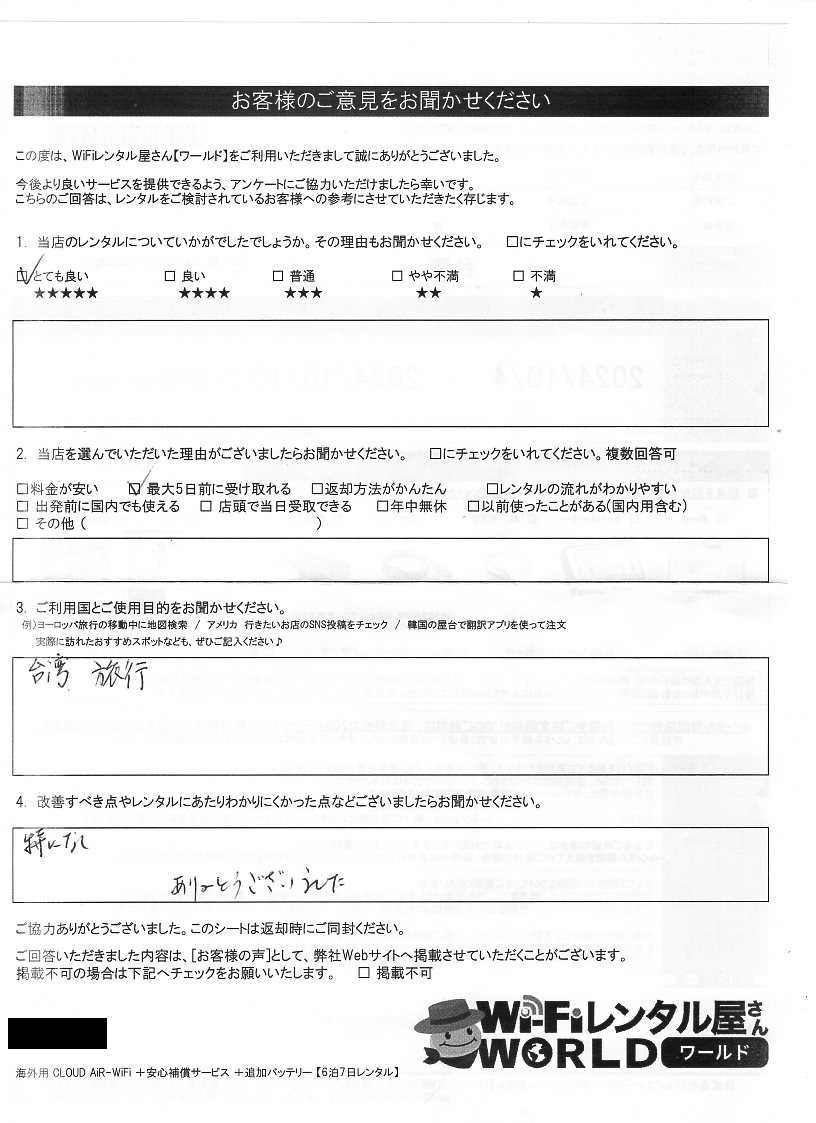 お客様のご意見をお聞かせください
この度は、WiFiレンタル屋さん【ワールド】をご利用いただきまして誠にありがとうございました。
今後より良いサービスを提供できるよう、アンケートにご協力いただけましたら幸いです。
こちらのご回答は、レンタルをご検討されているお客様への参考にさせていただきたく存じます。
1. 当店のレンタルについていかがでしたでしょうか。その理由もお聞かせください。 □にチェックをいれてください。
☑とても良い □ 良い □ 普通 □ やや不満 □ 不満
★★★★★ ★★★★ ★★★ ★★ ★
2. 当店を選んでいただいた理由がございましたらお聞かせください。 □にチェックをいれてください。複数回答可
□料金が安い ☑ 最大5日前に受け取れる □返却方法がかんたん □レンタルの流れがわかりやすい
□ 出発前に国内でも使える □ 店頭で当日受取できる □年中無休 □以前使ったことがある(国内用含む)
□ その他 ( )
3. ご利用国とご使用目的をお聞かせください。
例)ヨーロッパ旅行の移動中に地図検索 / アメリカ 行きたいお店のSNS投稿をチェック / 韓国の屋台で翻訳アプリを使って注文
実際に訪れたおすすめスポットなども、ぜひご記入ください♪
台湾 旅行
4. 改善すべき点やレンタルにあたりわかりにくかった点などございましたらお聞かせください。
特になし
ありがとうございました
ご協力ありがとうございました。このシートは返却時にご同封ください。
ご回答いただきました内容は、[お客様の声]として、弊社Webサイトへ掲載させていただくことがございます。
掲載不可の場合は下記へチェックをお願いいたします。 □ 掲載不可
Wi-Fiレンタル屋さん
WORLD ワールド
海外用 CLOUD AiR-WiFi +安心補償サービス +追加バッテリー【6泊7日レンタル】